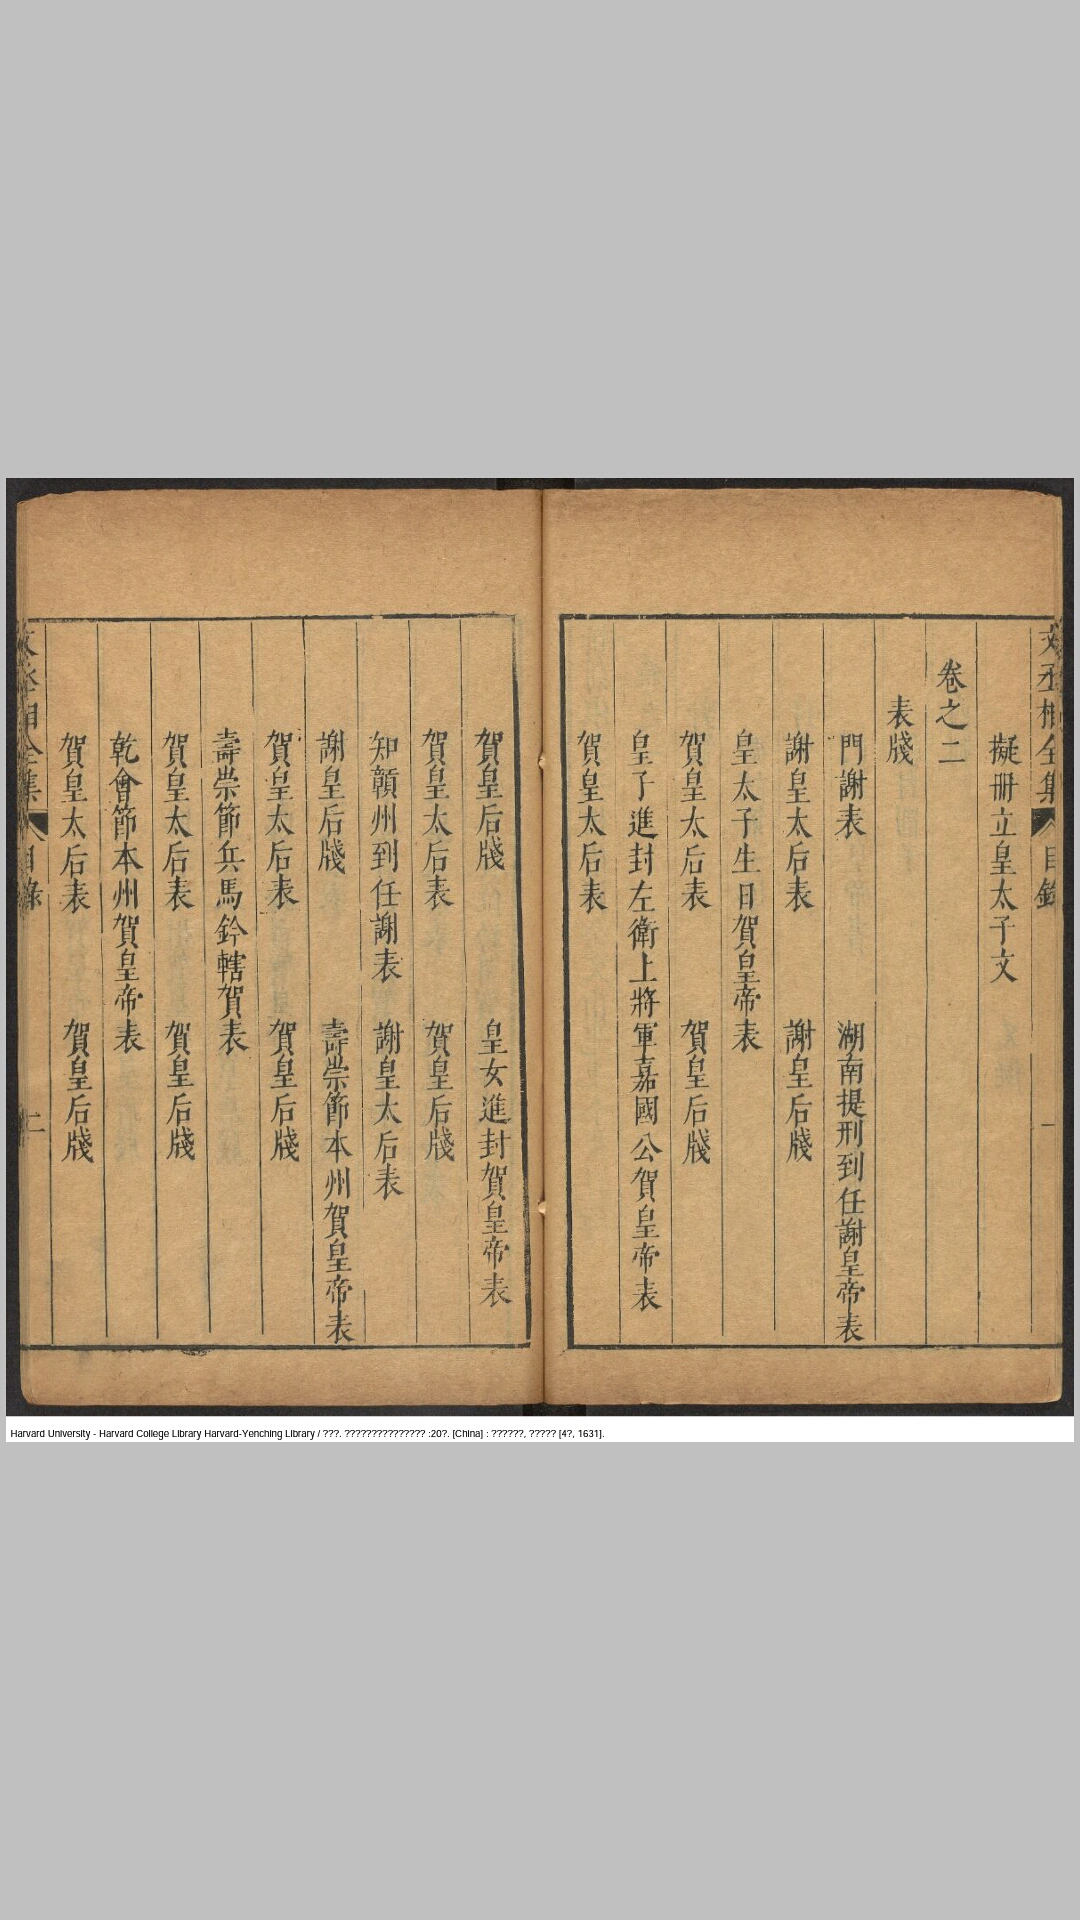 文丞相全集 目錄 一
擬冊立皇太子文
卷之二
表牋
門謝表 湖南提刑到任謝皇帝表
謝皇太后表 謝皇后牋
皇太子生日賀皇帝表
賀皇太后表 賀皇后牋
皇子進封左衛上將軍嘉國公賀皇帝表
賀皇太后表
賀皇后牋 皇女進封賀皇帝表
賀皇太后表 賀皇后牋
知贑州到任謝表 謝皇太后表
謝皇后牋 壽崇節本州賀皇帝表
賀皇太后表 賀皇后牋
壽崇節兵馬鈐轄賀表
賀皇太后表 賀皇后牋
乾會節本州賀皇帝表
賀皇太后表 賀皇后牋
文丞相全集 目錄 二
Harvard University - Harvard College Library Harvard-Yenching Library / ???. ??????????????? :20?. [China] : ??????, ????? [4?, 1631].